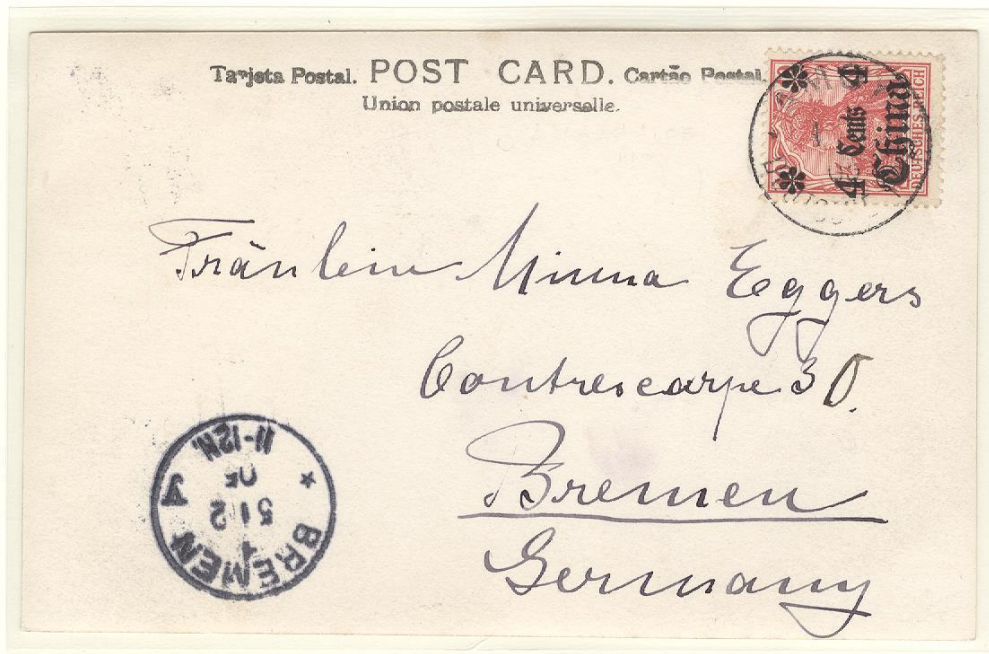 Tarjeta Postal. POST CARD. Cartão Postal.
Union postale universelle.
4 Cents 4
China
DEUTSCHES REICH
Fräulein Minna Eggers
Contrescarpe 30.
Bremen
Germany
* BREMEN *
1
5 12
05
11-12N.